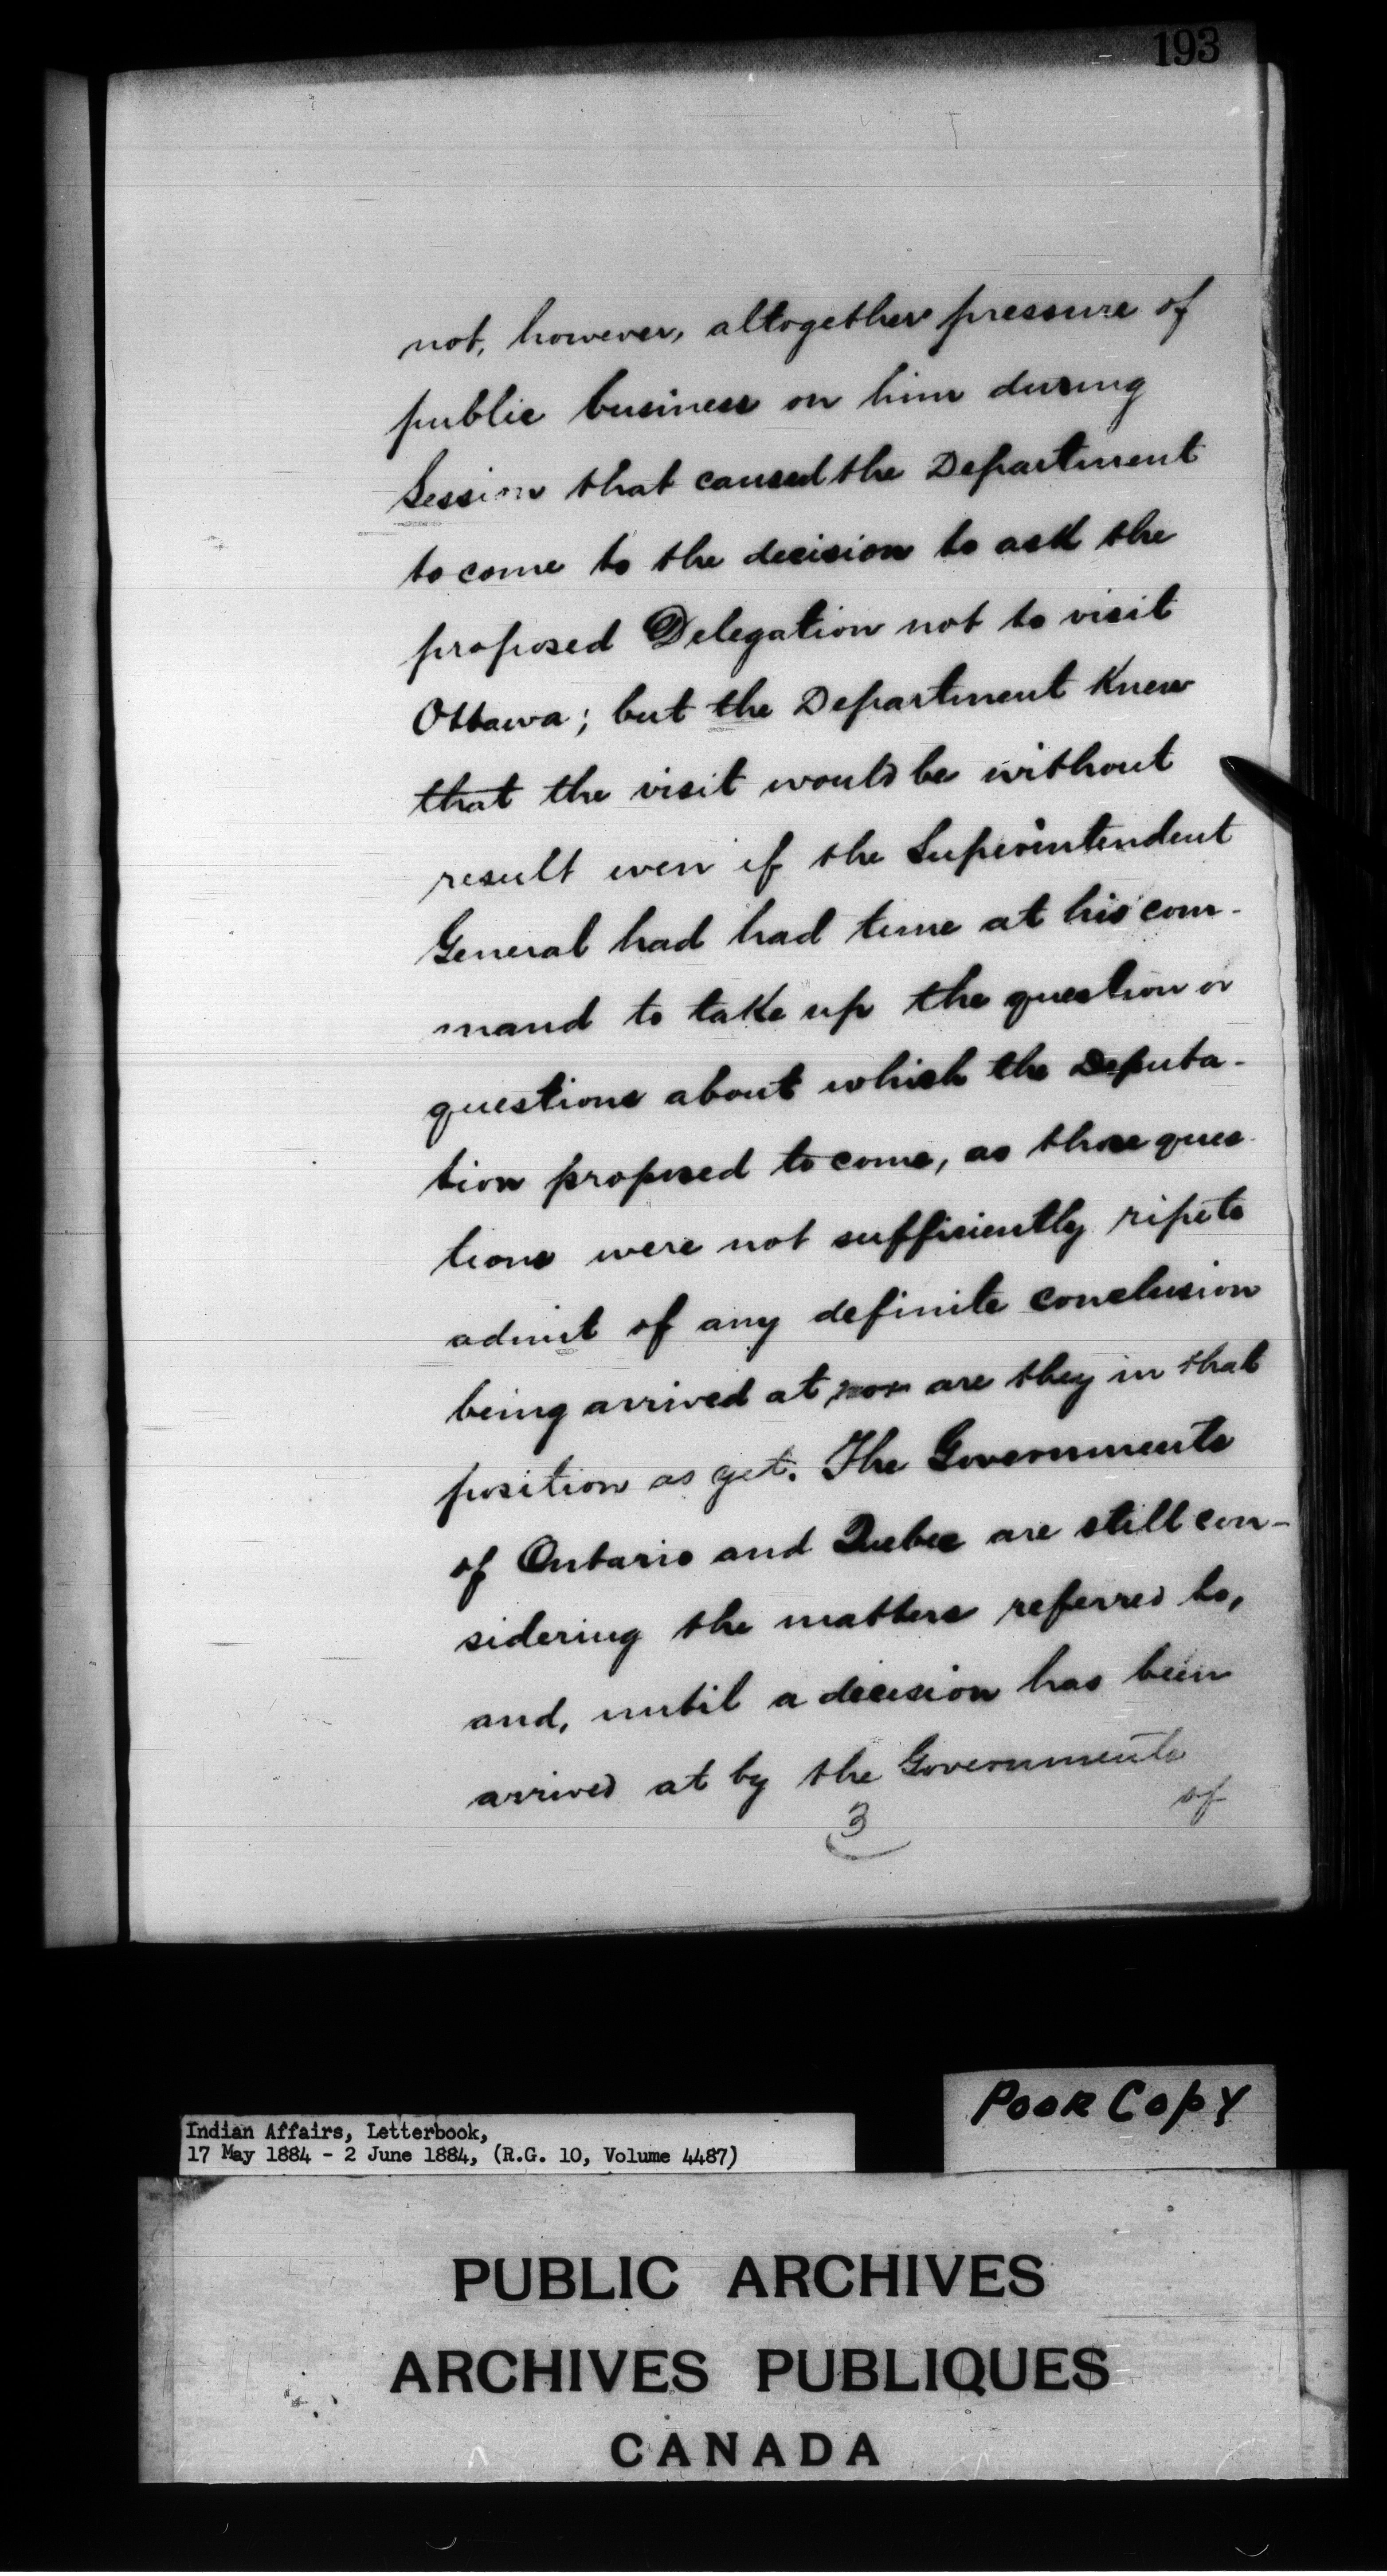 193
not, however, altogether pressure of
public business on him during
Session that caused the Department
to come to the decision to ask the
proposed Delegation not to visit
Ottawa; but the Department knew
that the visit would be without
result even if the Superintendent
General had had time at his com-
mand to take up the question or
questions about which the Deputa-
tion proposed to come, as those ques-
tions were not sufficiently ripe to
admit of any definite conclusion
being arrived at nor are they in that
position as yet. The Governments
of Ontario and Quebec are still con-
sidering the matters referred to,
and, until a decision has been
arrived at by the Governments
of
3
Poor Copy
Indian Affairs, Letterbook,
17 May 1884 - 2 June 1884, (R.G. 10, Volume 4487)
PUBLIC ARCHIVES
ARCHIVES PUBLIQUES
CANADA